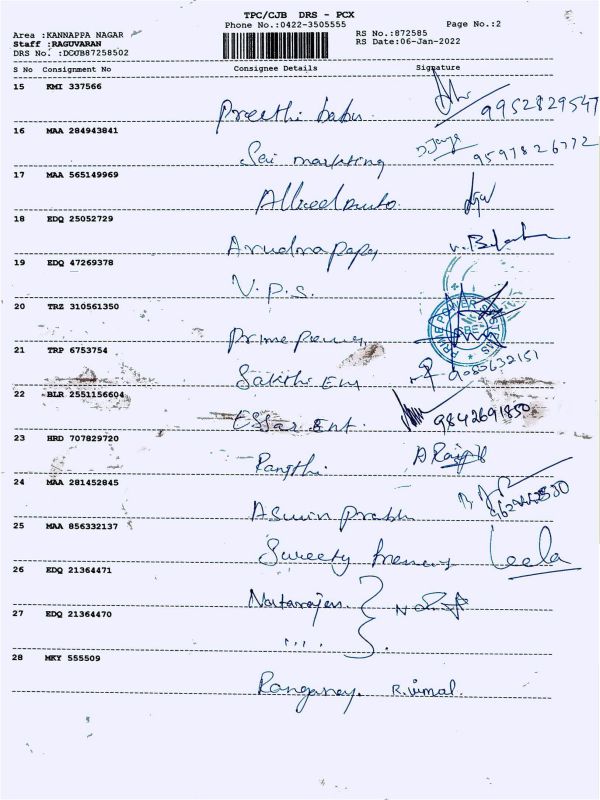 TPC/CJB DRS - PCX
Phone No.:0422-3505555
Page No.:2
Area :KANNAPPA NAGAR
RS No.:872585
Staff :RAGUVARAN
RS Date:06-Jan-2022
DRS No. :DCJUB87258502
S No Consignment No Consignee Details Signature
15 KMI 337566
Preethi babu. 9952829547
16 MAA 284943841
Sai marketing 9597826772
17 MAA 565149969
18 EDQ 25052729
19 EDQ 47269378
V.P.S.
20 TRZ 310561350
Prime power PRIME POWER SYSTEMS
21 TRP 6753754
Sakthi Em 9083632151
22 BLR 2551156604
Essar Ent. 9842691850
23 HRD 707829720
24 MAA 281452845
Aswin prabh
25 MAA 856332137
Sweety Leela
26 EDQ 21364471
Natarajan.
27 EDQ 21364470
....
28 MKY 555509
R.vimal.